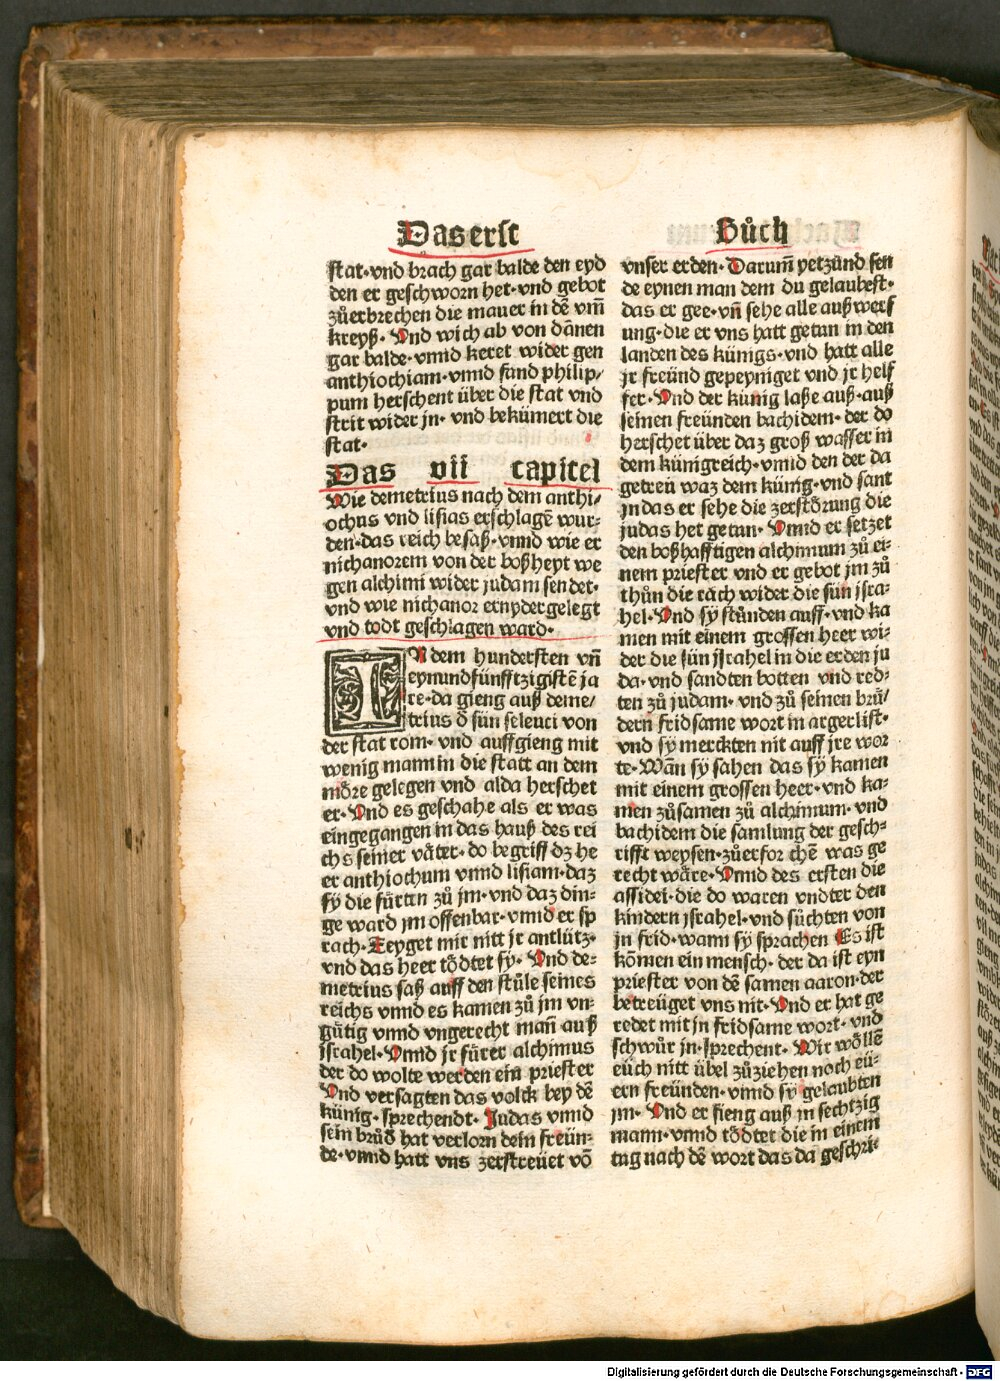 Das erst
stat·vnd brach gar balde den eyd
den er geschworn het·vnd gebot
zůerbrechen die mauer in dē vm̄
kreyß·Vnd wich ab von dānen
gar balde·vnnd keret wider gen
anthiochiam·vnnd fand philip/
pum herschent über die stat vnd
strit wider jn·vnd bekümert die
stat·
Das vii capitel
Wie demetrius nach dem anthi/
ochus vnd lisias erschlagē wur⸗
den·das reich besaß·vnnd wie er
nichanorem von der boßheyt we
gen alchimi wider judam sendet·
vnd wie nichanor ernyder gelegt
vnd todt geschlagen ward·
IN dem hundersten vn̄
eynundfünfftzigistē ja
re·da gieng auß deme/
trius d̄ sün seleuci von
der stat rom·vnd auffgieng mit
wenig mann in die statt an dem
möre gelegen vnd alda herschet
er·Vnd es geschahe als er was
eingegangen in das hauß des rei
chs seiner väter·do begriff dz he
er anthiochum vnnd lisiam·daz
sÿ die fürtn zů jm·vnd daz din⸗
ge ward jm offenbar·vnnd er sp
rach·Zeyget mir nitt jr antlütz·
vnd das heer tödtet sÿ·Vnd de⸗
metrius saß auff den stůle seines
reichs vnnd es kamen zů jm vn⸗
gütig vnnd vngerecht man̄ auß
jsrahel·Vnnd jr fürer alchimus
der do wolte werden ein priester
Vnd versagten das volck bey dē
künig·sprechendt·Judas vnnd
sein brůd̄ hat verlorn dein freün⸗
de·vnnd hatt vns zerstreüet vō
Bůch
vnser erden·Darum̄ yetzund sen
de eynen man dem du gelaubest·
das er gee·vn̄ sehe alle außwerf
ung·die er vns hatt getan in den
landen des künigs·vnd hatt alle
jr freünd gepeyniget vnd jr helf
fer·Vnd der künig laße auß·auß
seinen freünden bachidem·der do
herschet über daz groß wasser in
dem künigreich·vnnd den der da
getreü waz dem künig·vnd sant
jn das er sehe die zerstörung die
judas het getan·Vnnd er setzet
den boßhafftigen alchimum zů ei⸗
nem priester vnd er gebot jm zů
thůn die rach wider die sün jsra⸗
hel·Vnd sÿ stůnden auff·vnd ka
men mit einem grossen heer wi⸗
der die sün jsrahel in die erden ju
da·vnd sandten botten vnd red⸗
ten zů judam·vnd zů seinen brü/
dern fridsame wort in argerlist·
vnd sÿ merckten nit auff jre wor
te·Wān sÿ sahen das sÿ kamen
mit einem grossen heer·vnd ka⸗
men zůsamen zů alchimum·vnd
bachidem die samlung der gesch⸗
rifft weysen·zůerforchē was ge
recht wäre·Vnnd des ersten die
assidei·die do waren vndter den
kindern jsrahel·vnd süchten von
jn frid·wann sÿ sprachen Es ist
kōmen ein mensch·der da ist eyn
priester von dē samen aaron·der
betreüget vns nit·Vnd er hat ge
redet mit jn fridsame wort·vnd
schwůr jn·sprechent·Wir wöllē
eüch nitt übel zůziehen noch eü⸗
ern freünden·vnnd sÿ gelaubten
jm·Vnd er fieng auß jn sechtzig
mann·vnnd tödtet die in einem
tag nach dē wort das da geschri⸗
Digitalisierung gefördert durch die Deutsche Forschungsgemeinschaft - DFG